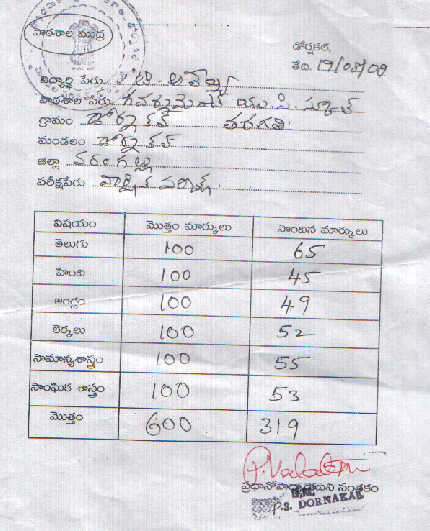 పాఠశాల ముద్ర
డోర్నకల్,
తేది. 19/03/09
విద్యార్థి పేరు
పాఠశాల పేరు గవర్నమెంట్ యు. పి. స్కూల్
గ్రామం డోర్నకల్ తరగతి
మండలం డోర్నకల్
జిల్లా వరంగల్లు
పరీక్షపేరు వార్షిక పరీక్ష
విషయం మొత్తం మార్కులు సాధించిన మార్కులు
తెలుగు 100 65
హింది 100 45
ఆంగ్లం 100 49
లెక్కలు 100 52
సామాన్యశాస్త్రం 100 55
సాంఘిక శాస్త్రం 100 53
మొత్తం 600 319
ప్రధానోపాధ్యాయుని సంతకం
H.M.
P.S. DORNAKAL